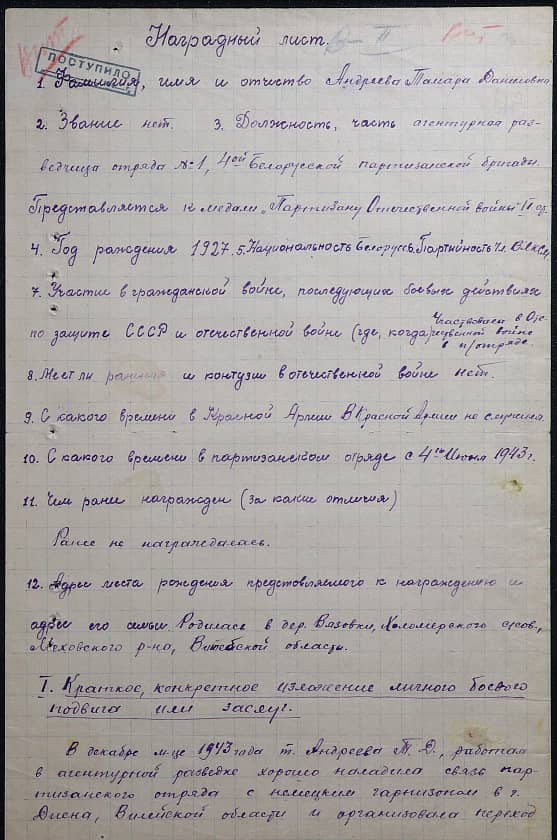 Наградный лист.
ПОСТУПИЛО
1. Фамилия, имя и отчество Андреева Тамара Даниловна
2. Звание нет. 3. Должность, часть агентурная раз-
ведчица отряда №1, 4ой Белорусской партизанской бригады.
Представляется к медали „Партизану Отечественной войны" II ст.
4. Год рождения 1927. 5. Национальность Белорус. Партийность чл. ВЛКСМ
7. Участие в гражданской войне, последующих боевых действиях
по защите СССР и отечественной войне (где, когда) Участвовала в Оте-
чественной войне
в п/отряде.
8. Имеет ли ранения и контузии в отечественной войне нет.
9. С какого времени в Красной Армии В Красной Армии не служила.
10. С какого времени в партизанском отряде с 4го Июня 1943 г.
11. Чем ранее награжден (за какие отличия)
Ранее не награждалась.
12. Адрес места рождения представляемого к награждению и
адрес его семьи. Родилась в дер. Вязовки, Холомерского с/сов.,
Меховского р-на, Витебской области.
I. Краткое, конкретное изложение личного боевого
подвига или заслуг.
В декабре м-це 1943 года т. Андреева Т. Д., работая
в агентурной разведке хорошо наладила связь пар-
тизанского отряда с немецким гарнизоном в г.
Дисна, Вилейской области и организовала переход